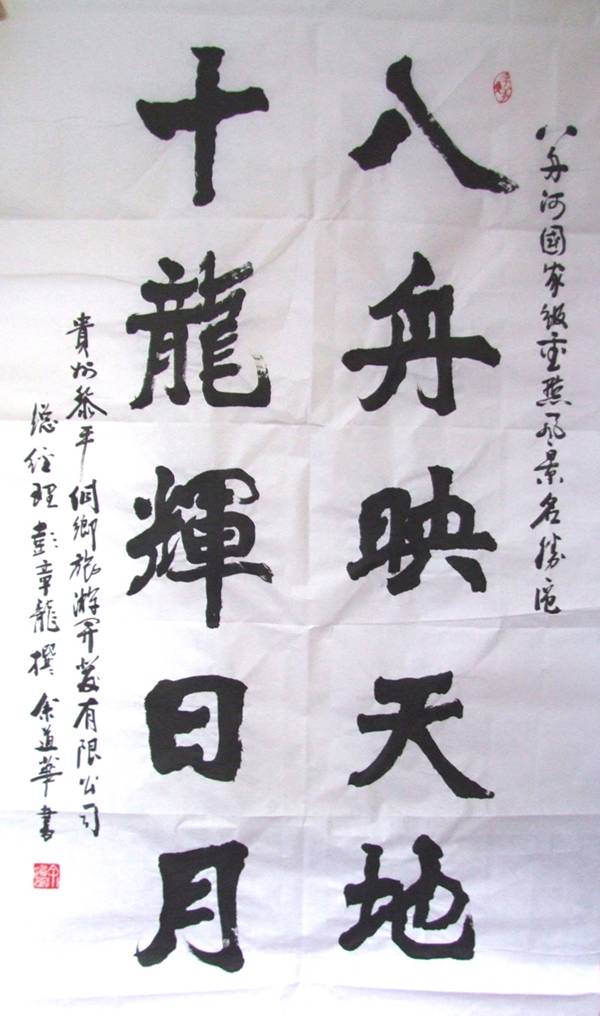 八舟河國家级重點风景名勝区
八舟映天地
十龍輝日月
貴州黎平侗鄉旅游開發有限公司
総经理彭章龍撰余道華書